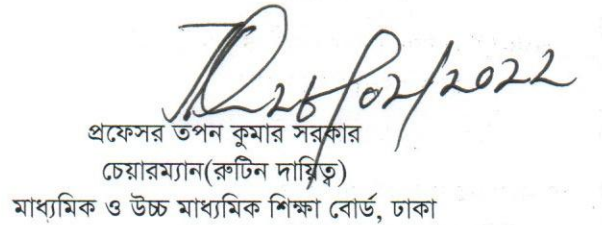 28/02/2022
প্রফেসর তপন কুমার সরকার
চেয়ারম্যান(রুটিন দায়িত্ব)
মাধ্যমিক ও উচ্চ মাধ্যমিক শিক্ষা বোর্ড, ঢাকা